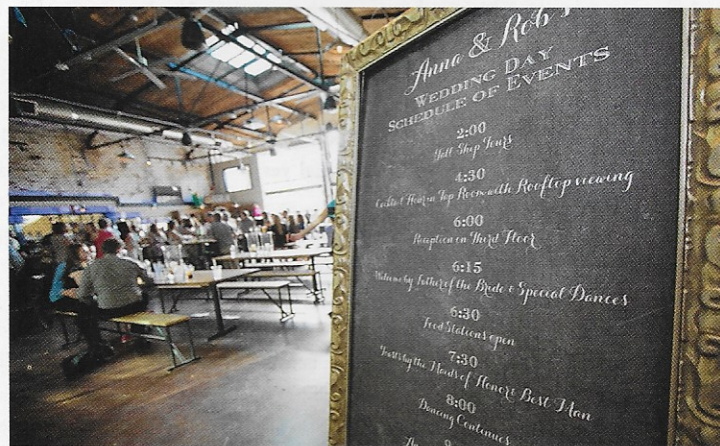 Anna & Rob's
Wedding Day
Schedule of Events
2:00
Tall Ship Tours
4:30
Cocktail Hour in Top Room with Rooftop viewing
6:00
Reception on Third Floor
6:15
Welcome by Father of the Bride & Special Dances
6:30
Food Stations open
7:30
Toasts by the Maids of Honor & Best Man
8:00
Dancing Continues